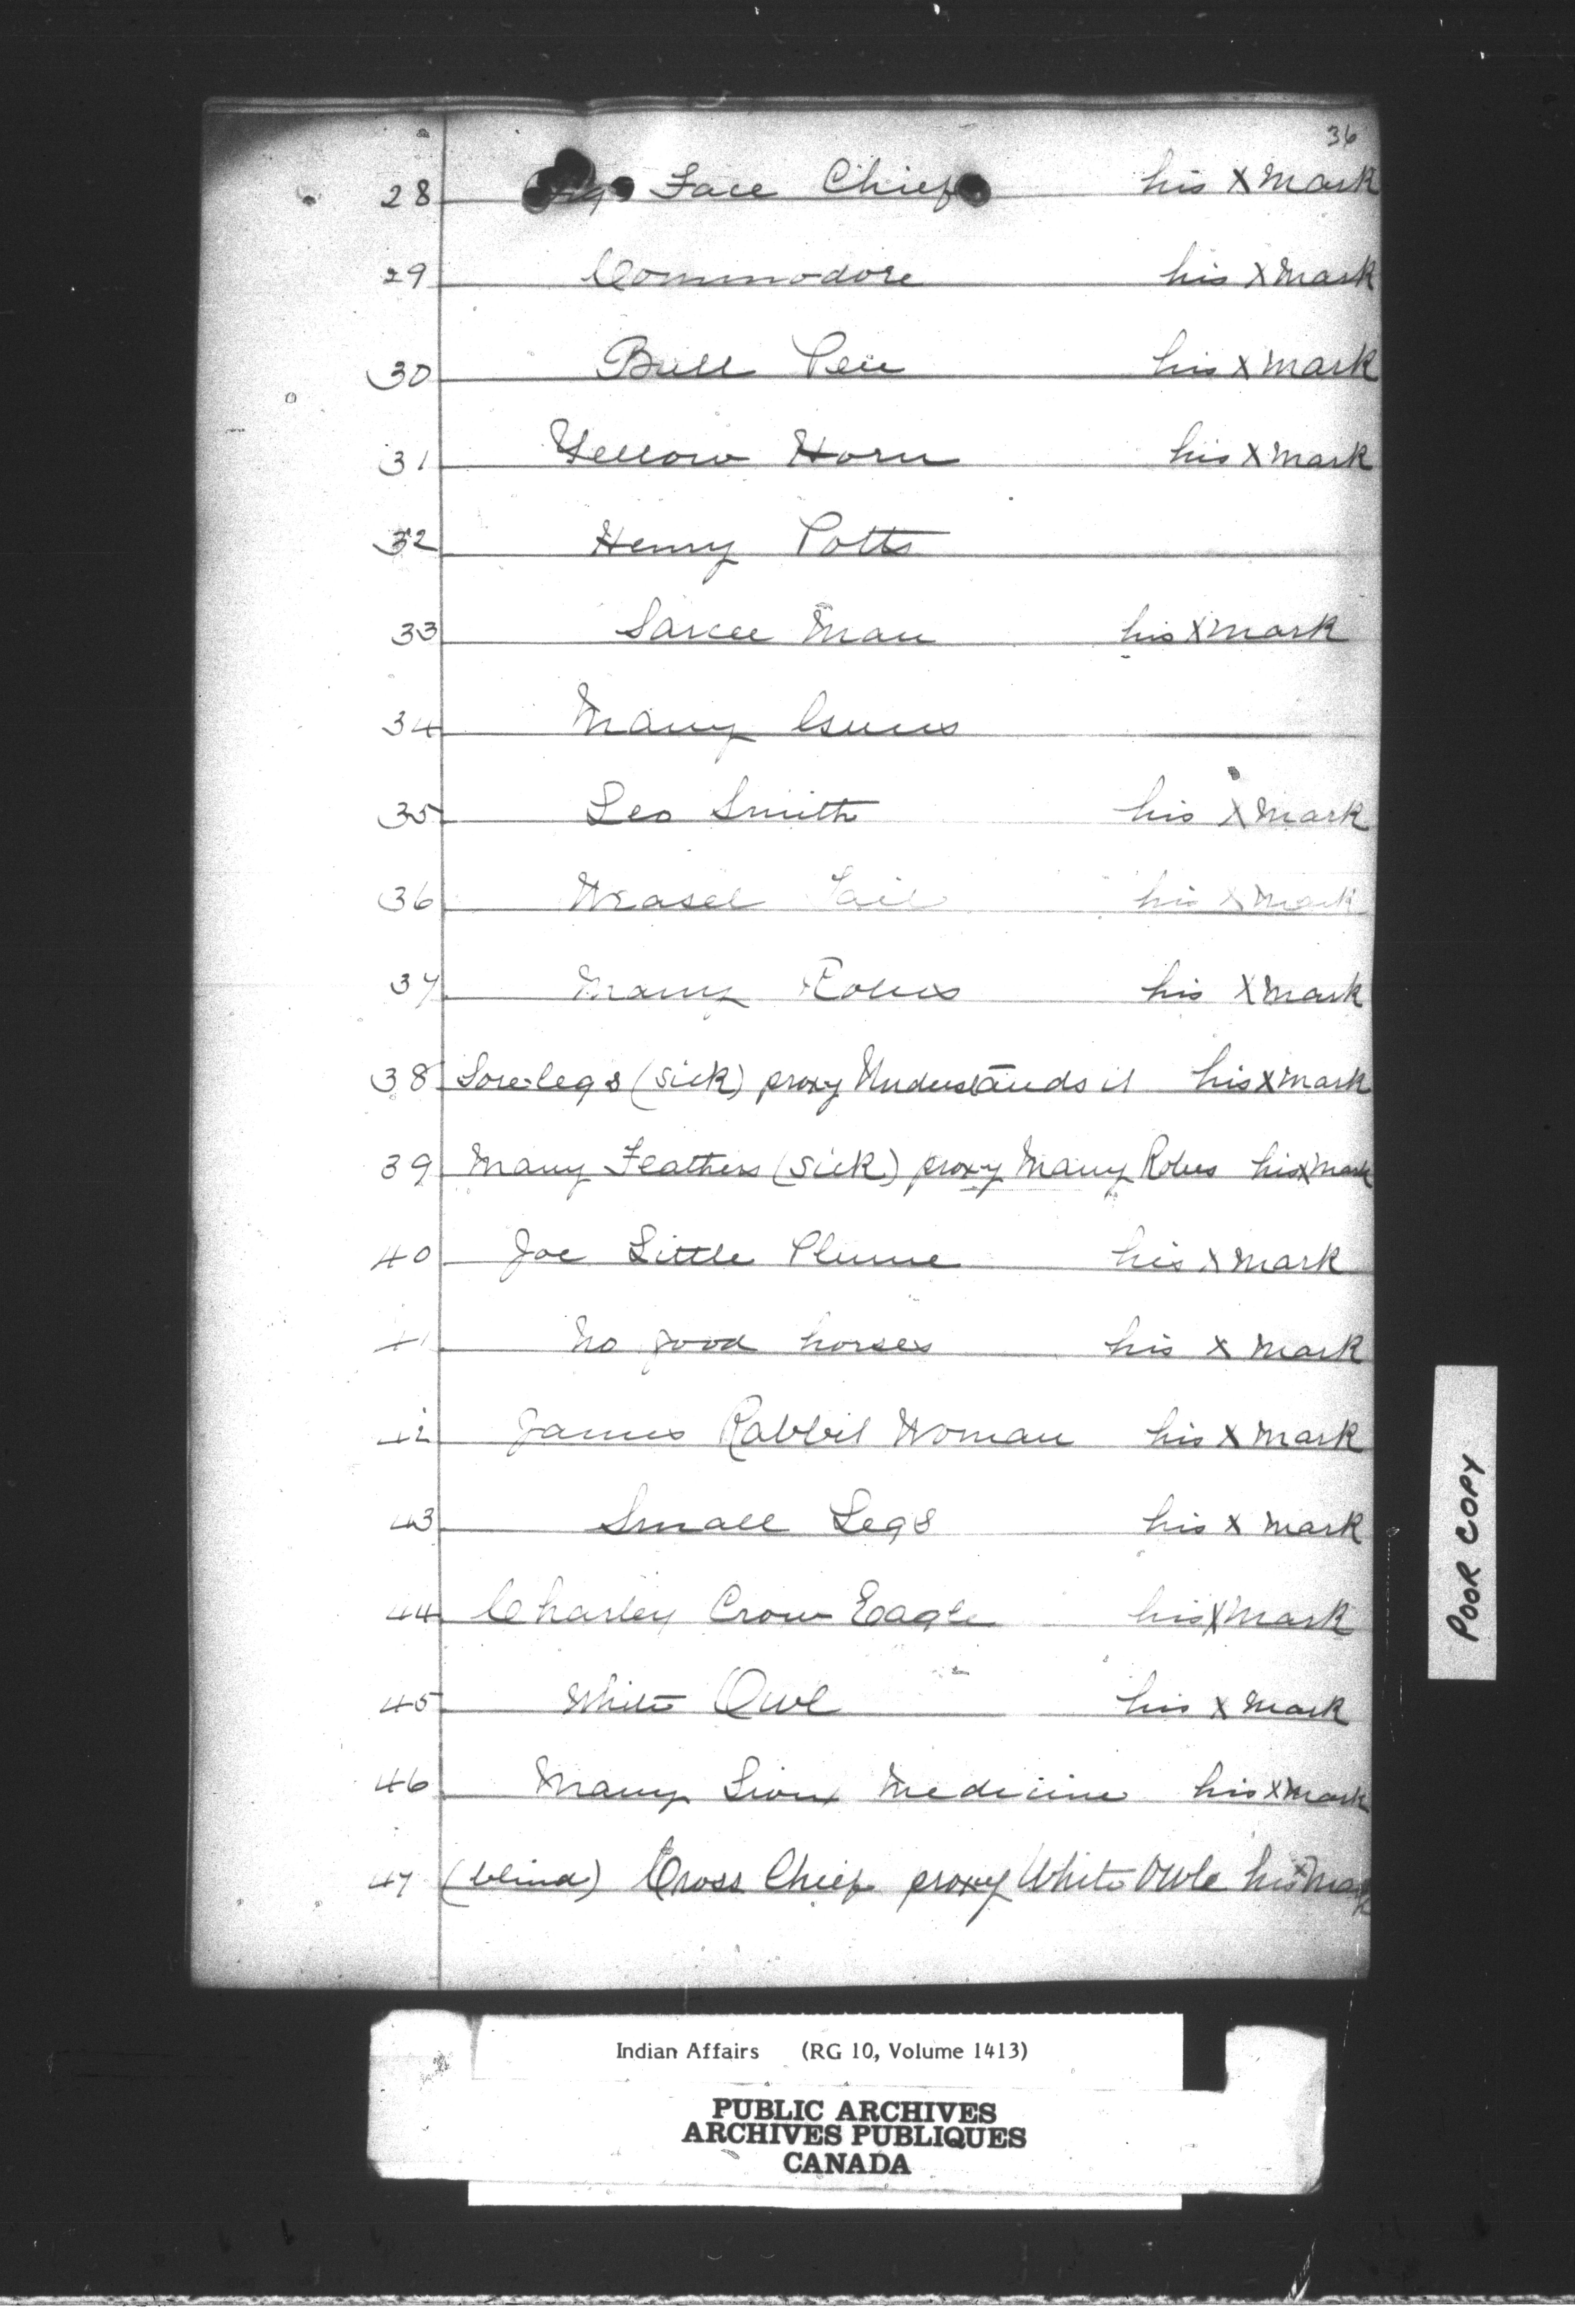 36
28 Face Chief his X mark
29 Commodore his X mark
30 Bull Pen his X mark
31 Yellow Horn his X mark
32 Henry Potts
33 Sarcee Man his X mark
34 Many Guns
35 Leo Smith his X mark
36 Weasel Tail his X mark
37 Many Robes his X mark
38 Sore legs (sick) proxy Understands it his X mark
39 Many Feathers (sick) proxy Many Robes his X mark
40 Joe Little Plume his X mark
41 No good horses his X mark
42 James Rabbit Woman his X mark
43 Small Legs his X mark
44 Charley Crow Eagle his X mark
45 White Owl his X mark
46 Many Lion Medicine his X mark
47 (blind) Cross Chief proxy White Owle his X mark
POOR COPY
Indian Affairs (RG 10, Volume 1413)
PUBLIC ARCHIVES
ARCHIVES PUBLIQUES
CANADA